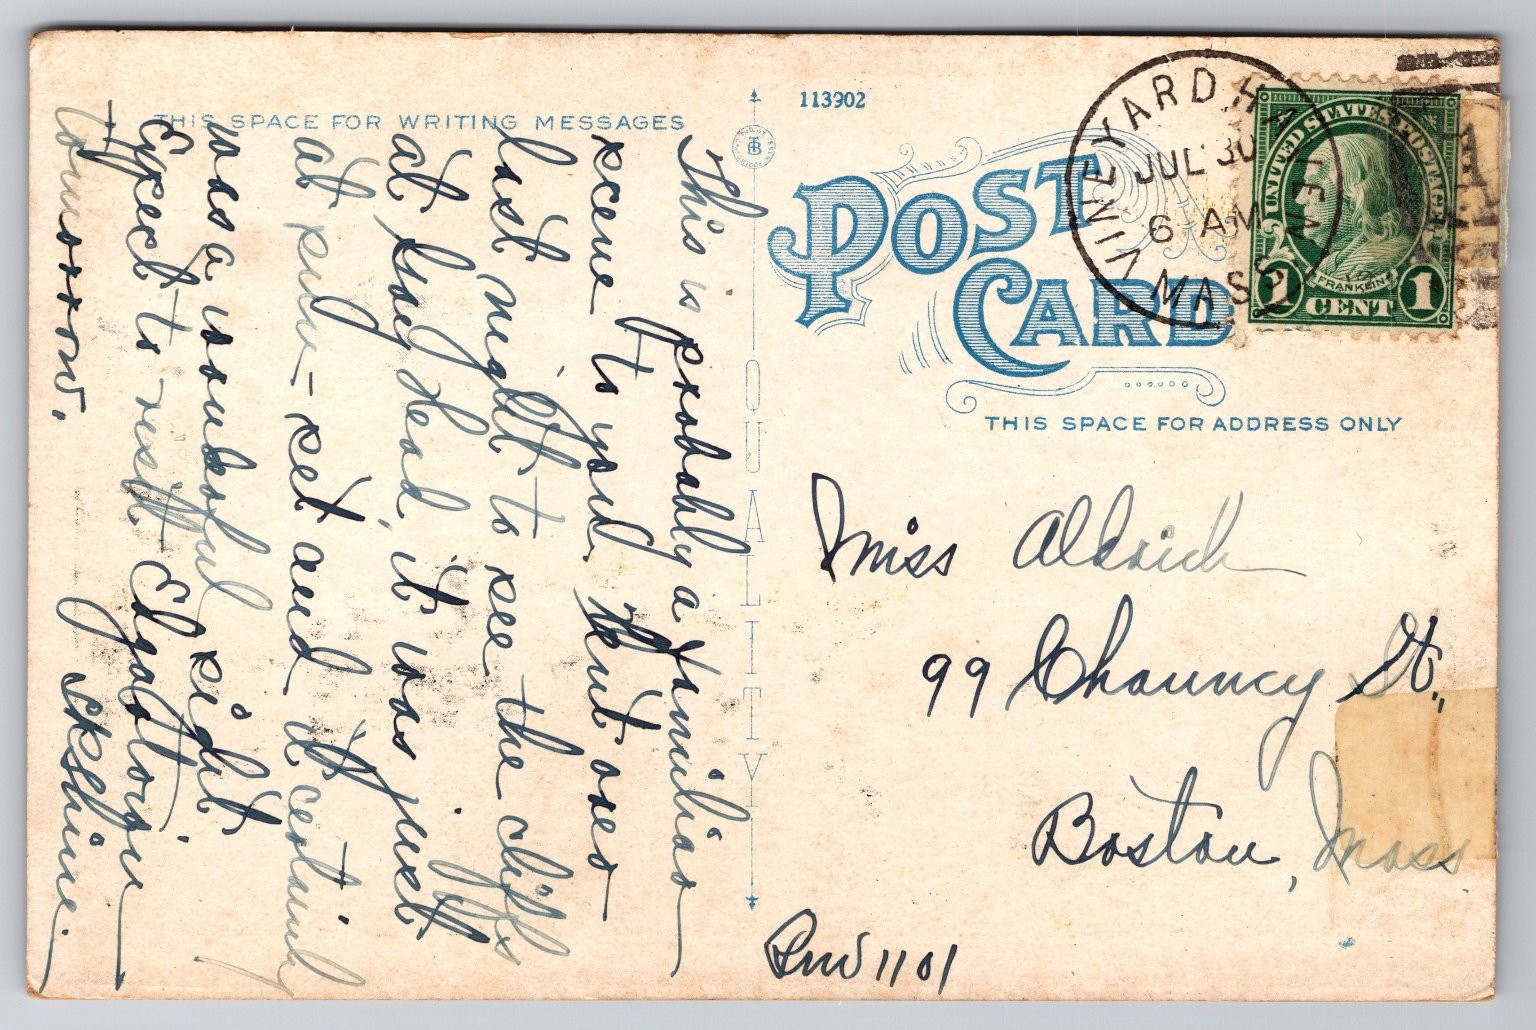 THIS SPACE FOR WRITING MESSAGES
113902
POST CARD
VINEYARD HAVEN
JUL 30
6 AM
MASS
UNITED STATES POSTAGE
FRANKLIN
1 CENT 1
THIS SPACE FOR ADDRESS ONLY
QUALITY
This is probably a familiar
scene to you. Went over
last night to see the cliffs
at Gay Head, it was just
at sun-set and it certainly
was a wonderful sight
Expect to visit
tomorrow.
Miss Aldrich
99 Chauncy St.,
Boston, Mass
Rm 1101